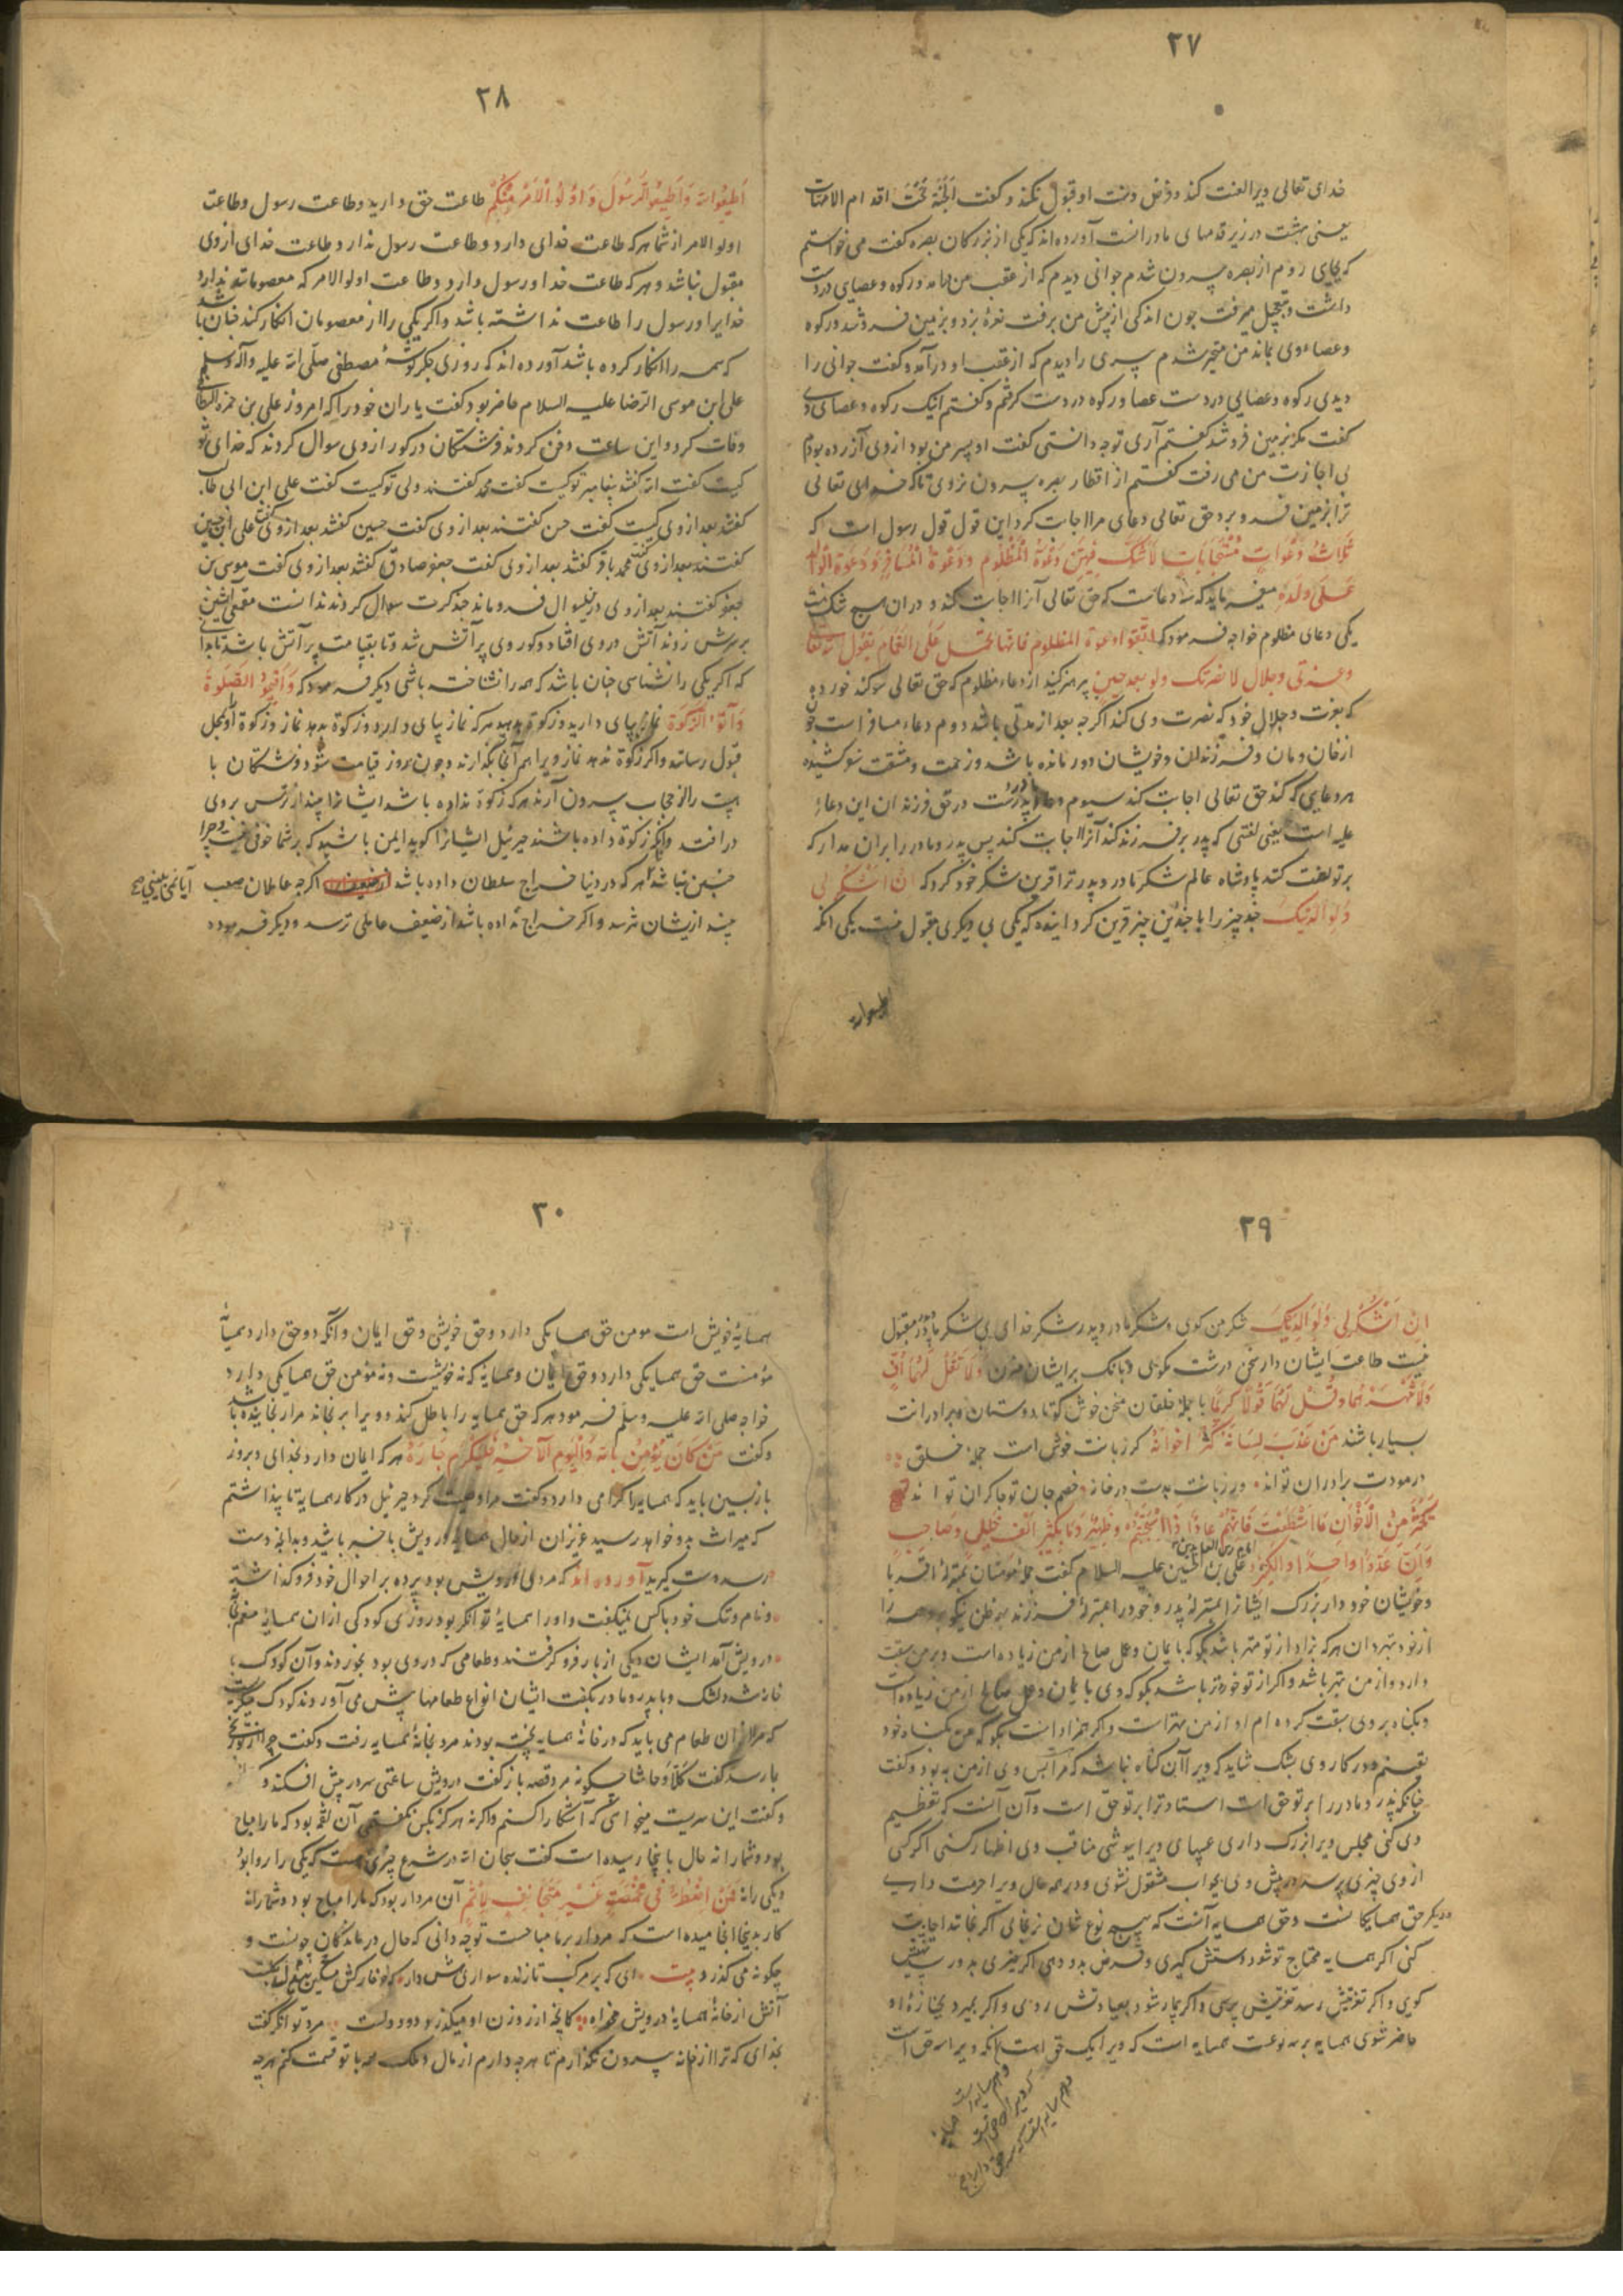 ۲۷
خدای تعالی ویرا لعنت کند و فرض و سنت او قبول نکند و گفت اَلجَنَّةُ تَحْتَ اقدام الامّهات
یعنی بهشت در زیر قدمهای مادرانست آورده‌اند که یکی از بزرکان بصره گفت می خواستم
که بجایی روم از بصره بیرون شدم جوانی دیدم که از عقب من بیامد و رکوه و عصایی در دست
داشت و بتعجیل میرفت چون اندکی از پیش من برفت نعرهٔ بزد و بزمین فرو شد و رکوه
و عصاء وی بماند من متحیر شدم پیری را دیدم که از عقب او درآمد و گفت جوانی را
دیدی رکوه و عصایی در دست عصا و رکوه در دست گرفتم و گفتم اینک رکوه و عصای وی
گفت مگر بزمین فرو شد گفتم آری تو چه دانستی گفت او پسر من بود از وی آزرده بودم
بی اجازت من می رفت گفتم از اقطار بصره بیرون نروی تا که خدای تعالی
ترا بزمین فرو برد حق تعالی دعای مرا اجابت کرد این قول قول رسول است که
ثَلاثُ دَعَواتٍ مُسْتَجاباتٍ لَاشَکَّ فِیهِنَّ دَعْوَةُ الْمَظْلُوم وَدَعْوَةُ الْمُسَافِرِ وَدَعْوَةُ الْوالد
عَلَی وَلَدِهِ میفرماید که سه دعاست که حق تعالی آنرا اجابت کند و در ان هیچ شک نیست
یکی دعای مظلوم خواجه فرمود که اتّقوا دعوة المظلوم فانّها تحمل علی الغمام یقول الله تعالی
وعزتی وجلالی لانصرنک ولو بعد حین پرهیز کنید از دعاء مظلوم که حق تعالی سوگند خورده
که بعزت و جلال خود که نصرت وی کند اگرچه بعد از مدتی باشد دوم دعاء مسافر است چون
از خان و مان و فرزندان و خویشان دور مانده باشد و زحمت و مشقت سفر کشیده
هر دعایی که کند حق تعالی اجابت کند سیوم دعاء پدر است در حق فرزند ان این دعاء
علیه است یعنی لعنتی که پدر بر فرزند کند آنرا اجابت کند پس پدر و مادر را بران مدار که
بر تو لعنت کنند پادشاه عالم شکر مادر و پدر ترا قرین شکر خود کرد که اَنِ اشْکُرْ لِی
وَلِوالِدَیْکَ چند چیز را با چندین چیز قرین کردانیده که یکی بی دیگری مقبول نیست یکی انکه
اطیعوا الله
۲۸
اَطِیعُوا الله وَاَطِیعُوا الرَّسُولَ وَاُولُو الْاَمْرِ مِنْکُمْ طاعت حق دارید و طاعت رسول و طاعت
اولوالامر از شما هر که طاعت خدای دارد و طاعت رسول ندارد طاعت خدای ازوی
مقبول نباشد و هر که طاعت خدا و رسول دارد و طاعت اولوالامر که معصومانند ندارد
خدایرا و رسول را طاعت نداشته باشد و اگر یکی را از معصومان انکار کند چنان باشد
که همه را انکار کرده باشد آورده‌اند که روزی جگر گوشهٔ مصطفی صلّی الله علیه وآله وسلم
علی ابن موسی الرضا علیه السلام حاضر بود گفت یاران خود را که امروز علی بن حمزه البطائنی
وفات کرد و این ساعت دفن کردند فرشتکان در گور از وی سوال کردند که خدای تو
کیست گفت الله گفتند پیغامبر تو کیست گفت محمد گفتند ولی تو کیست گفت علی ابن ابی طالب
گفتند بعد از وی کیست گفت حسن گفتند بعد از وی گفت حسین گفتند بعد از وی گفت علی بن حسین
گفتند بعد از وی گفت محمد باقر گفتند بعد از وی گفت جعفر صادق گفتند بعد از وی گفت موسی بن
جعفر گفتند بعد از وی درین سوال فروماند چند کرت سوال کردند ندانست مقمعی آتشین
بر سرش زدند آتش در وی افتاد و گور وی پر آتش شد و تا بقیامت پر آتش باشد تا بدانی
که اگر یکی را نشناسی چنان باشد که همه را نشناخته باشی دیگر فرمود که وَاَقِیمُوا الصَّلوةَ
وَآتُوا الزَّکوةَ نماز بپای دارید و زکوة بدهید هر که نماز بپای دارد و زکوة بدهد نماز و زکوة او بمحل
قبول رساند و اگر زکوة ندهد نماز ویرا هم آنجا بگذارند و چون بروز قیامت شود فرشتکان با
هیبت را از حجاب بیرون آرند هر که زکوة نداده باشد ایشانرا بیند از ترس بروی
درافتد و اگر زکوة داده باشند جبرئیل ایشانرا گوید ایمن باشید که بر شما خوفی نیست و چرا
چنین نباشد هر که در دنیا خراج سلطان داده باشد اگرچه عاملان صعب
آیا نمی بینی
بیند ازیشان نترسد و اگر خراج نداده باشد از ضعیف عاملی ترسد و دیگر فرموده
۲۹
اَنِ اشْکُرْ لِی وَلِوالِدَیْکَ شکر من گوی و شکر مادر و پدر شکر خدای بی شکر مادر و پدر مقبول
نیست طاعت ایشان دار سخن درشت مگوی و بانگ بر ایشان مزن وَلَا تَقُلْ لَهُمَا اُفٍّ
وَلَا تَنْهَرْهُمَا وَقُلْ لَهُمَا قَوْلاً کَرِیمًا با جملهٔ خلقان سخن خوش گو تا دوستان و برادرانت
بسیار باشند مَنْ عَذُبَ لِسَانُهُ کَثُرَ اِخْوَانُهُ گر زبانت خوش است جملهٔ خلق
در مودت برادران تواند ور زبانت بدست در خانه خصم جان تو چاکران تو اند
بِکَثْرَةِ مِنَ الْاِخْوانِ مَا اسْتَطَعْتَ فَاِنَّهُمْ عِمادٌ اِذَا اسْتَنْجَدْتَهُم وَظَهِیرُ وَمَا بِکَثِیرٍ اَلْفُ خَلِیلٍ وَصاحِبٍ
وَاِنَّ عَدُوًّا واحِدًا لَکَثِیرُ علی بن الحسین علیه السلام گفت جملهٔ مومنان بمنزلهٔ اقربا
امام زین العابدین
و خویشان خود دار بزرک ایشانرا بمنزلهٔ پدر و خورد را بمنزلهٔ فرزند و ظن نیکو بر همه را
از خود بهتر دان هر که بزاد از تو مهتر باشد بگو که بایمان و عمل صالح از من زیاده است و بر من سبقت
دارد و از من بهتر باشد و اگر از تو خوردتر باشد بگو که وی بایمان و عمل صالح از من زیاده است
و بگناه بر وی سبقت کرده ام او از من بهتر است و اگر همزاد است بگو که من بگناه خود
یقینم و در کار وی بشک شاید که ویرا آن گناه نباشد که مراست پس وی از من به بود و گفت
چنانکه پدر و مادر را بر تو حق است استاد ترا بر تو حق است و آن آنست که تعظیم
وی کنی مجلس ویرا بزرک داری عیبهای ویرا بپوشی مناقب وی اظهار کنی اگر کسی
از وی چیزی پرسد در پیش وی بجواب مشغول نشوی و در همه حال ویرا حرمت داری
و دیگر حق همسایکانست و حق همسایه آنست که بهیچ نوع شان نرنجانی اگر بخوانند اجابت
کنی اگر همسایه محتاج تو شود دستش گیری و قرض بدو دهی اگر خیری بدو رسد تهنیت
گویی و اگر تعزیتیش رسد تعزیتیش پرسی و اگر بیمار شود بعیادتش روی و اگر بمیرد بجنازهٔ او
حاضر شوی همسایه بر سه نوعست همسایه است که ویرا یک حق است و آنکه ویرا سه حق است
۳۰
همسایهٔ خویش است مومن حق همسایکی دارد و حق خویشی و حق ایمان و آنگه دو حق دارد همسایهٔ
مؤمنست حق همسایکی دارد و حق ایمان و همسایهٔ که نه خویشست و نه مؤمن حق همسایکی دارد
خواجه صلی الله علیه وسلم فرمود هر که حق همسایه را باطل کند و ویرا برنجاند مرا رنجانیده باشد
و گفت مَنْ کَانَ یُؤْمِنُ بِاللهِ وَالْیَوْمِ الآخِرِ فَلْیُکْرِمْ جَارَهُ هر که ایمان دارد بخدای و بروز
بازپسین باید که همسایه را گرامی دارد و گفت مرا وصیت کرد جبرئیل در کار همسایه تا پنداشتم
که میراث بدو خواهد رسید عزیزان از حال همسایهٔ درویش با خبر باشید و بدانچه دست
رسد دست گیرید آورده‌اند که مردی درویش بود پرده بر احوال خود فرو گذاشته
و نام و ننک خود با کس نمیگفت و او را همسایهٔ توانگر بود روزی کودکی ازان همسایهٔ منعم بخانهٔ
درویش آمد ایشان دیگی از بار فرو گرفتند و طعامی که در وی بود بخوردند و آن کودک با
خانه شد دلتنک و با پدر و مادر بگفت ایشان انواع طعامها پیش می آوردند کودک میگریست
که مرا ازان طعام می باید که در خانهٔ همسایه پخته بودند مرد بخانهٔ همسایه رفت و گفت چرا از تو رنج
بما رسد گفت کَلّا وَحاشا چگونه مرد قصه باز گفت درویش ساعتی سر در پیش افکند و
و گفت این سریست میخواهی که آشکارا کنم و اگر نه هرگز بکس نگفتمی آن لقمه بود که ما را مباح
بود و شما را نه حال بما اینجا رسیده است گفت سبحان الله در شرع چیزی هست که یکی را روا بود
و یکی را نه فَمَنِ اضْطُرَّ فِی مَخْمَصَةٍ غَیْرَ مُتَجانِفٍ لِاِثْمٍ آن مردار بود که ما را مباح بود و شما را نه
کار بدینجا انجامیده است که مردار بر ما مباحست تو چه دانی که حال درماندکان چونست و
چگونه می گذرد بیت ای که بر مرکب تازنده سواری هش دار که خر خارکش مسکین در آب و گلست
آتش از خانهٔ همسایهٔ درویش مخواه کانچه از روزن او میگذرد دود دلست مرد توانگر گفت
بخدای که ترا از خانه بیرون نگذارم تا هرچه دارم از مال و ملک همه با تو قسمت کنم هرچه